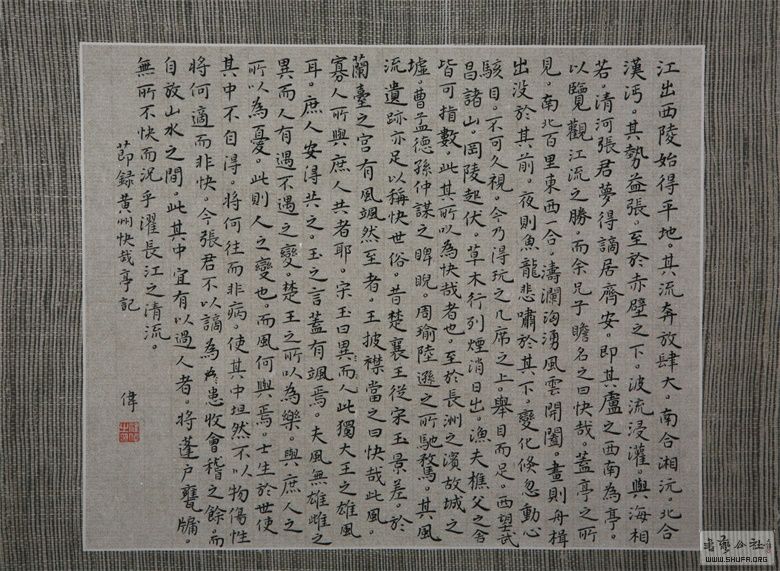 江出西陵始得平地。其流奔放肆大。南合湘沅。北合
漢沔。其勢益張。至於赤壁之下。波流浸灌。與海相
若。清河張君夢得謫居齊安。即其廬之西南為亭。
以覽觀江流之勝。而余兄子瞻名之曰快哉。蓋亭之所
見。南北百里東西一合。濤瀾洶湧風雲開闔。晝則舟楫
出没於其前。夜則魚龍悲嘯於其下。變化倏忽動心
駭目。不可久視。今乃得玩之几席之上。舉目而足。西望武
昌諸山。岡陵起伏。草木行列煙消日出。漁夫樵父之舍
皆可指數。此其所以為快哉者也。至於長洲之濱故城之
墟。曹孟德孫仲謀之睥睨。周瑜陸遜之所馳騖。其風
流遺跡亦足以稱快世俗。昔楚襄王從宋玉景差。於
蘭臺之宫有風颯然至者。王披襟當之曰快哉此風。
寡人所與庶人共者耶。宋玉曰此獨大王之雄風
耳。庶人安得共之。玉之言蓋有諷焉。夫風無雄雌之
異而人有遇不遇之變。楚王之所以為樂。與庶人之
所以為憂。此則人之變也。而風何與焉。士生於世使
其中不自得。將何往而非病。使其中坦然不以物傷性
將何適而非快。今張君不以謫為患收會稽之餘。而
自放山水之間。此其中宜有以過人者。將蓬户甕牖。
無所不快而況乎濯長江之清流。
節録黃州快哉亭記
偉
書藝公社
WWW.SHUFA.ORG